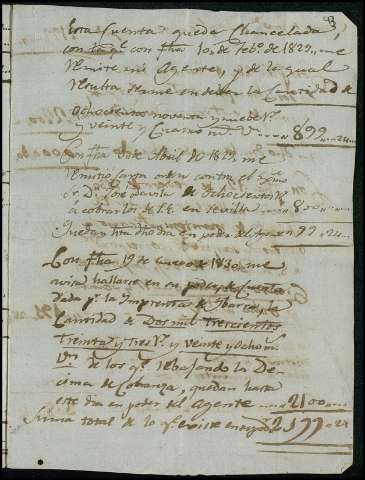 Esta Cuenta queda Chancelada
con la qe. con fha 10, de Febo. de 1829,, me
remite mi Agente, y de la qual
resulta deuerme en deuda la Cantidad de
ochocientos noventa y nueve Rs.
y veinte y Cuatro ms. Vn. 899,,24,,
Con fha 8 de Abril de 1829, me
remitio carta orden contra el Exmo
Sr. D. Jose Davila de Ochocientos Rs.
á cobrarlos de S.E. en Sevilla 800
Quedan hta dho dia en poder del Agente 99,,24,,
Con fha 19 de Enero de 1830, me
avisa hallarse en su poder de Cuenta
dada pr. la Imprenta de Ibarra, la
Cantidad de Dos mil trescientos
treinta y tres Rs. y veinte y ocho ms.
Vn. de los qe. rebajando la De-
cima de Cobranza, quedan hasta
este dia en poder del Agente 2100
Suma total de lo qe. existe en su poder 2,199,,24